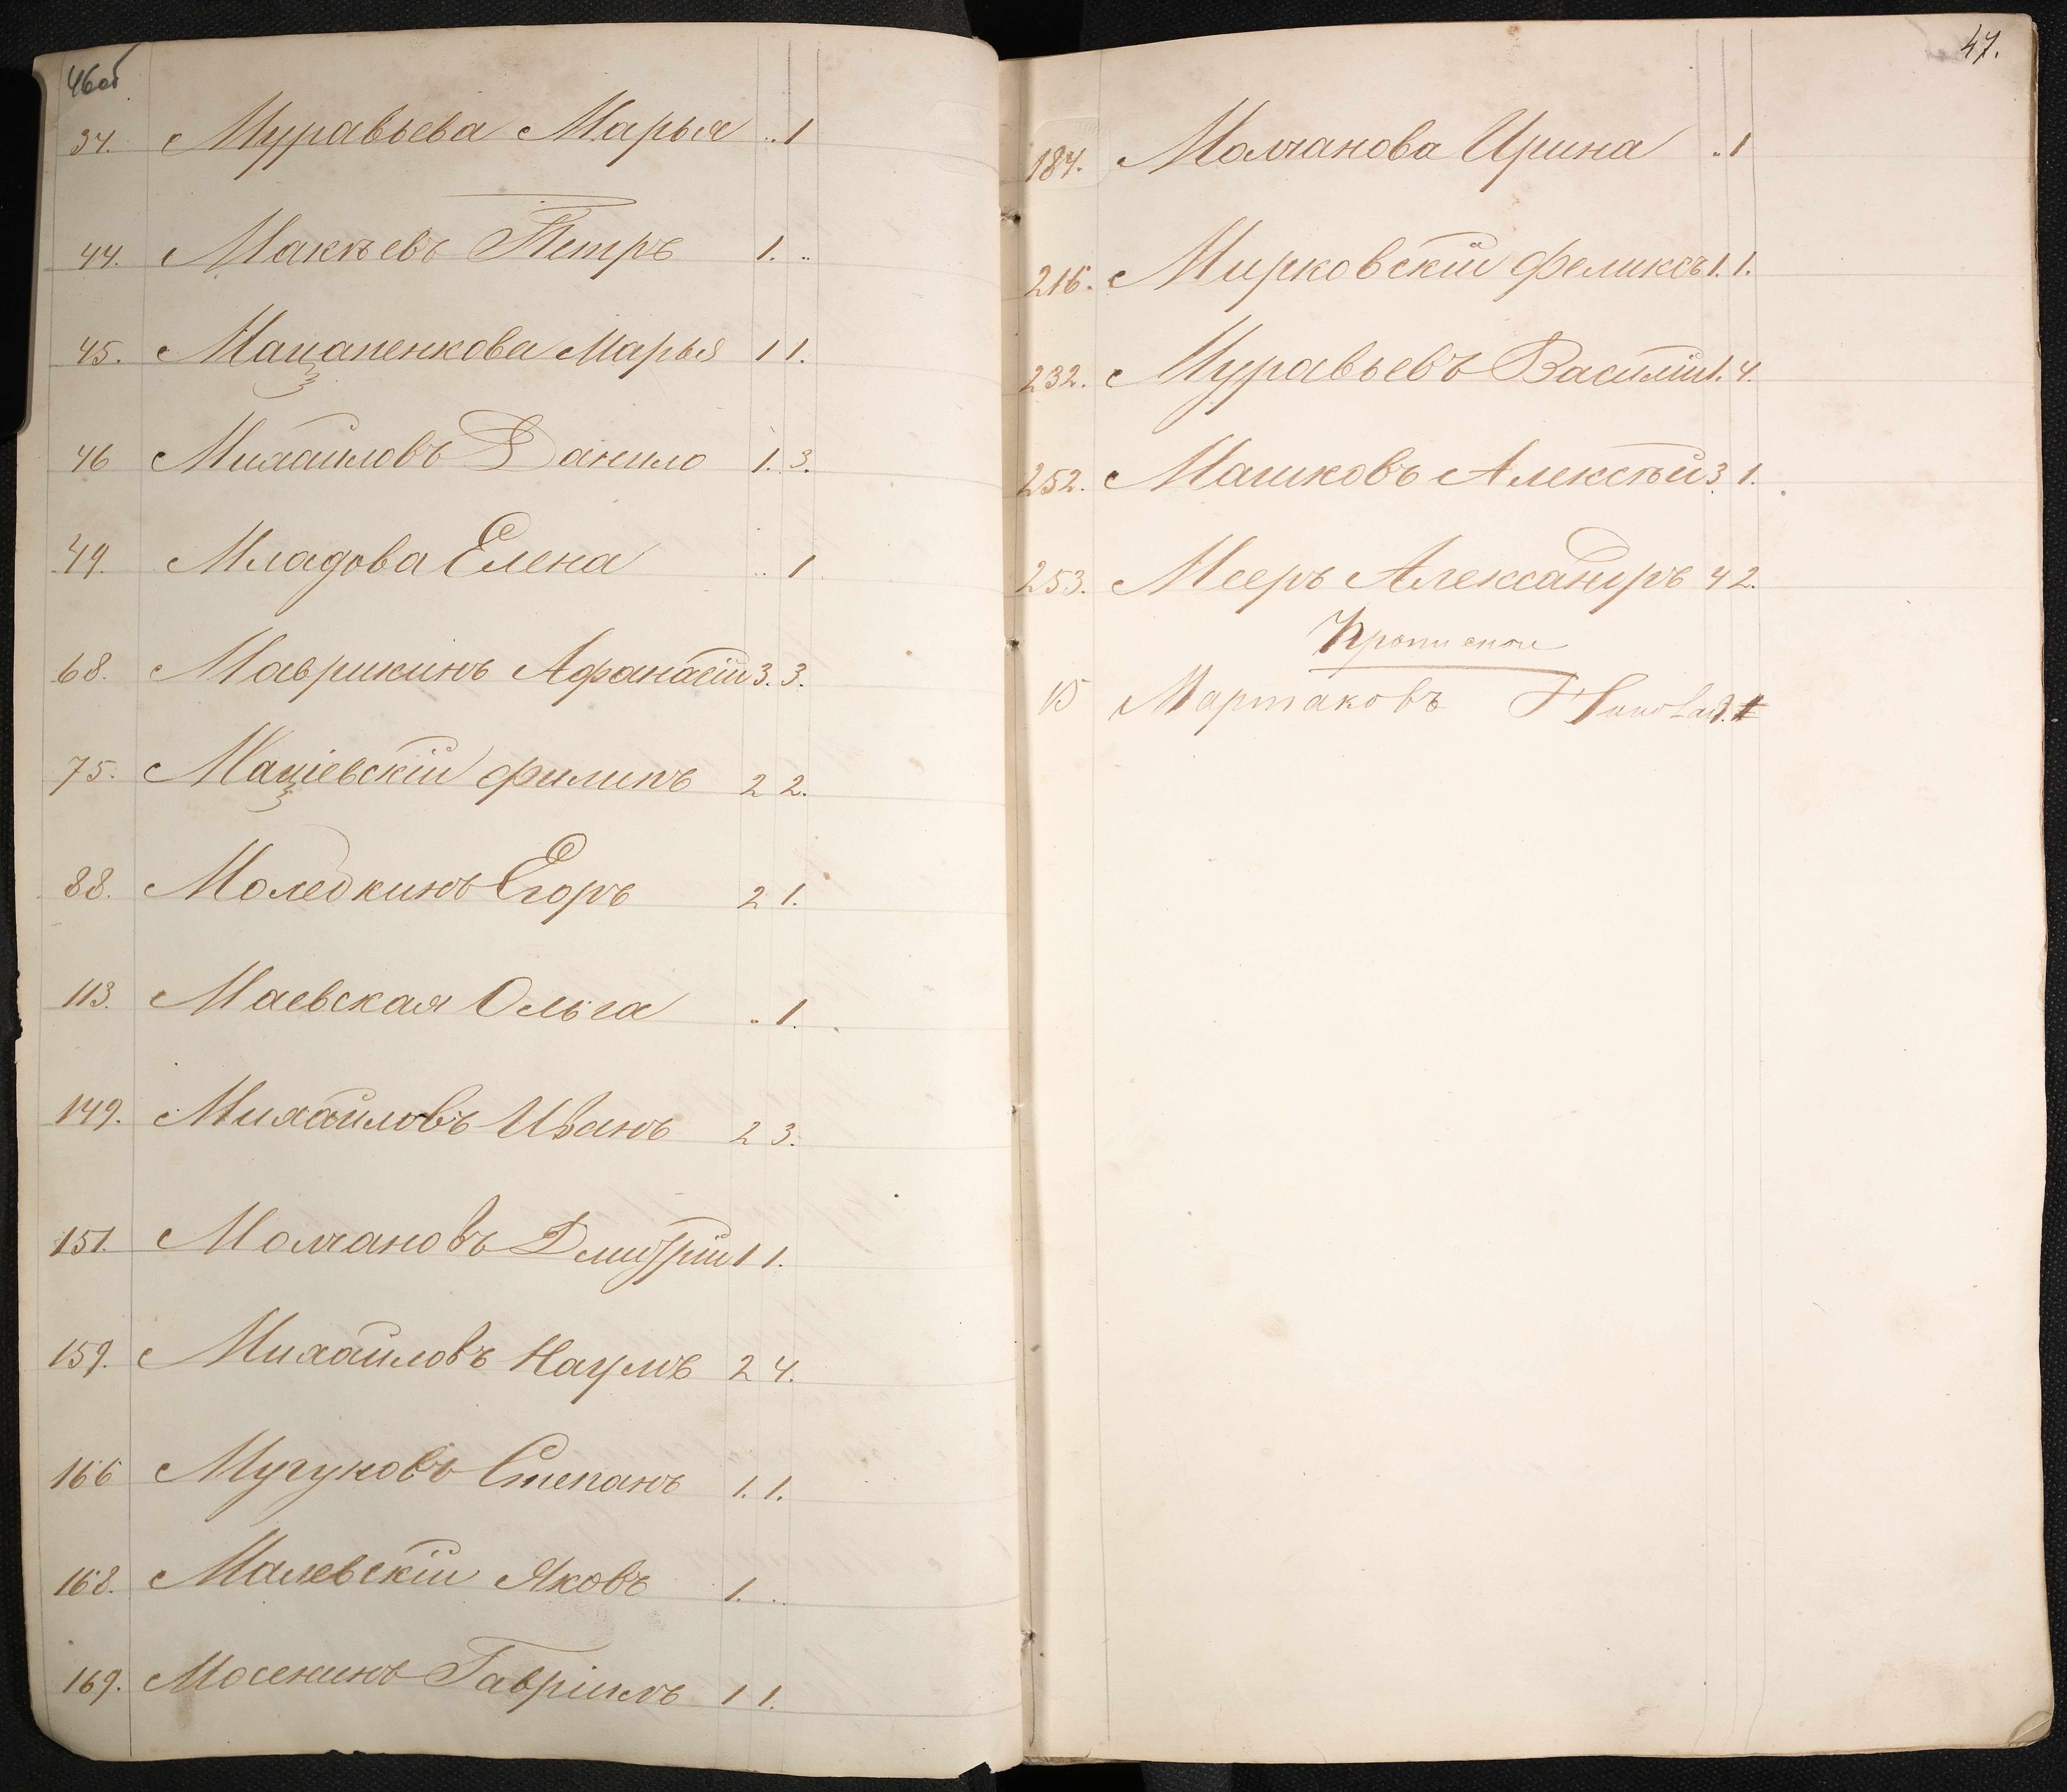 46об
34. Муравьева Марья .. 1
44. Макѣевъ Петръ 1. ..
45. Мацапенкова Марья 1 1.
46 Михайловъ Данило 1. 3.
49. Младова Елена .. 1
68. Маврикинъ Афанасій 3. 3.
75. Маціевскій Филипъ 2 2.
88. Моледкинъ Егоръ 2 1.
113. Маевская Ольга .. 1.
149. Михайловъ Иванъ 2 3.
151. Молчановъ Дмитрій 1 1.
159. Михайловъ Наумъ 2 4.
166 Мугуновъ Степанъ 1. 1.
168. Малевскій Яковъ 1. ..
169. Мосенинъ Гавріилъ 1 1.
47.
184. Молчанова Ирина .. 1
216. Мирковскій Феликсъ 1. 1.
232. Муравьевъ Василій 1. 4.
252. Машковъ Алексѣй 3 1.
253. Мееръ Александръ 4 2.
15 Мартаковъ Николай